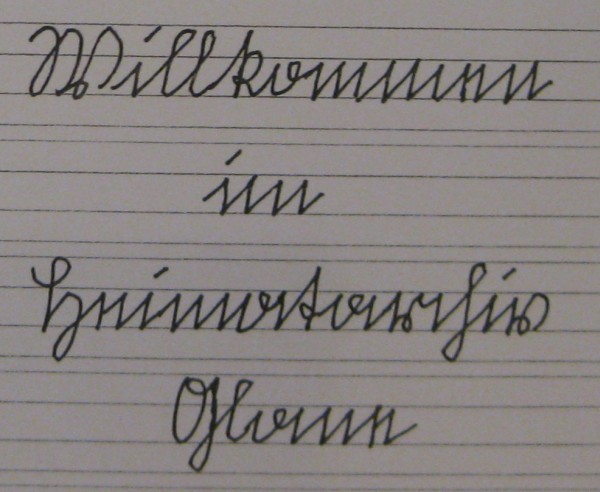 Willkommen
im
Heimatarchiv
Glane